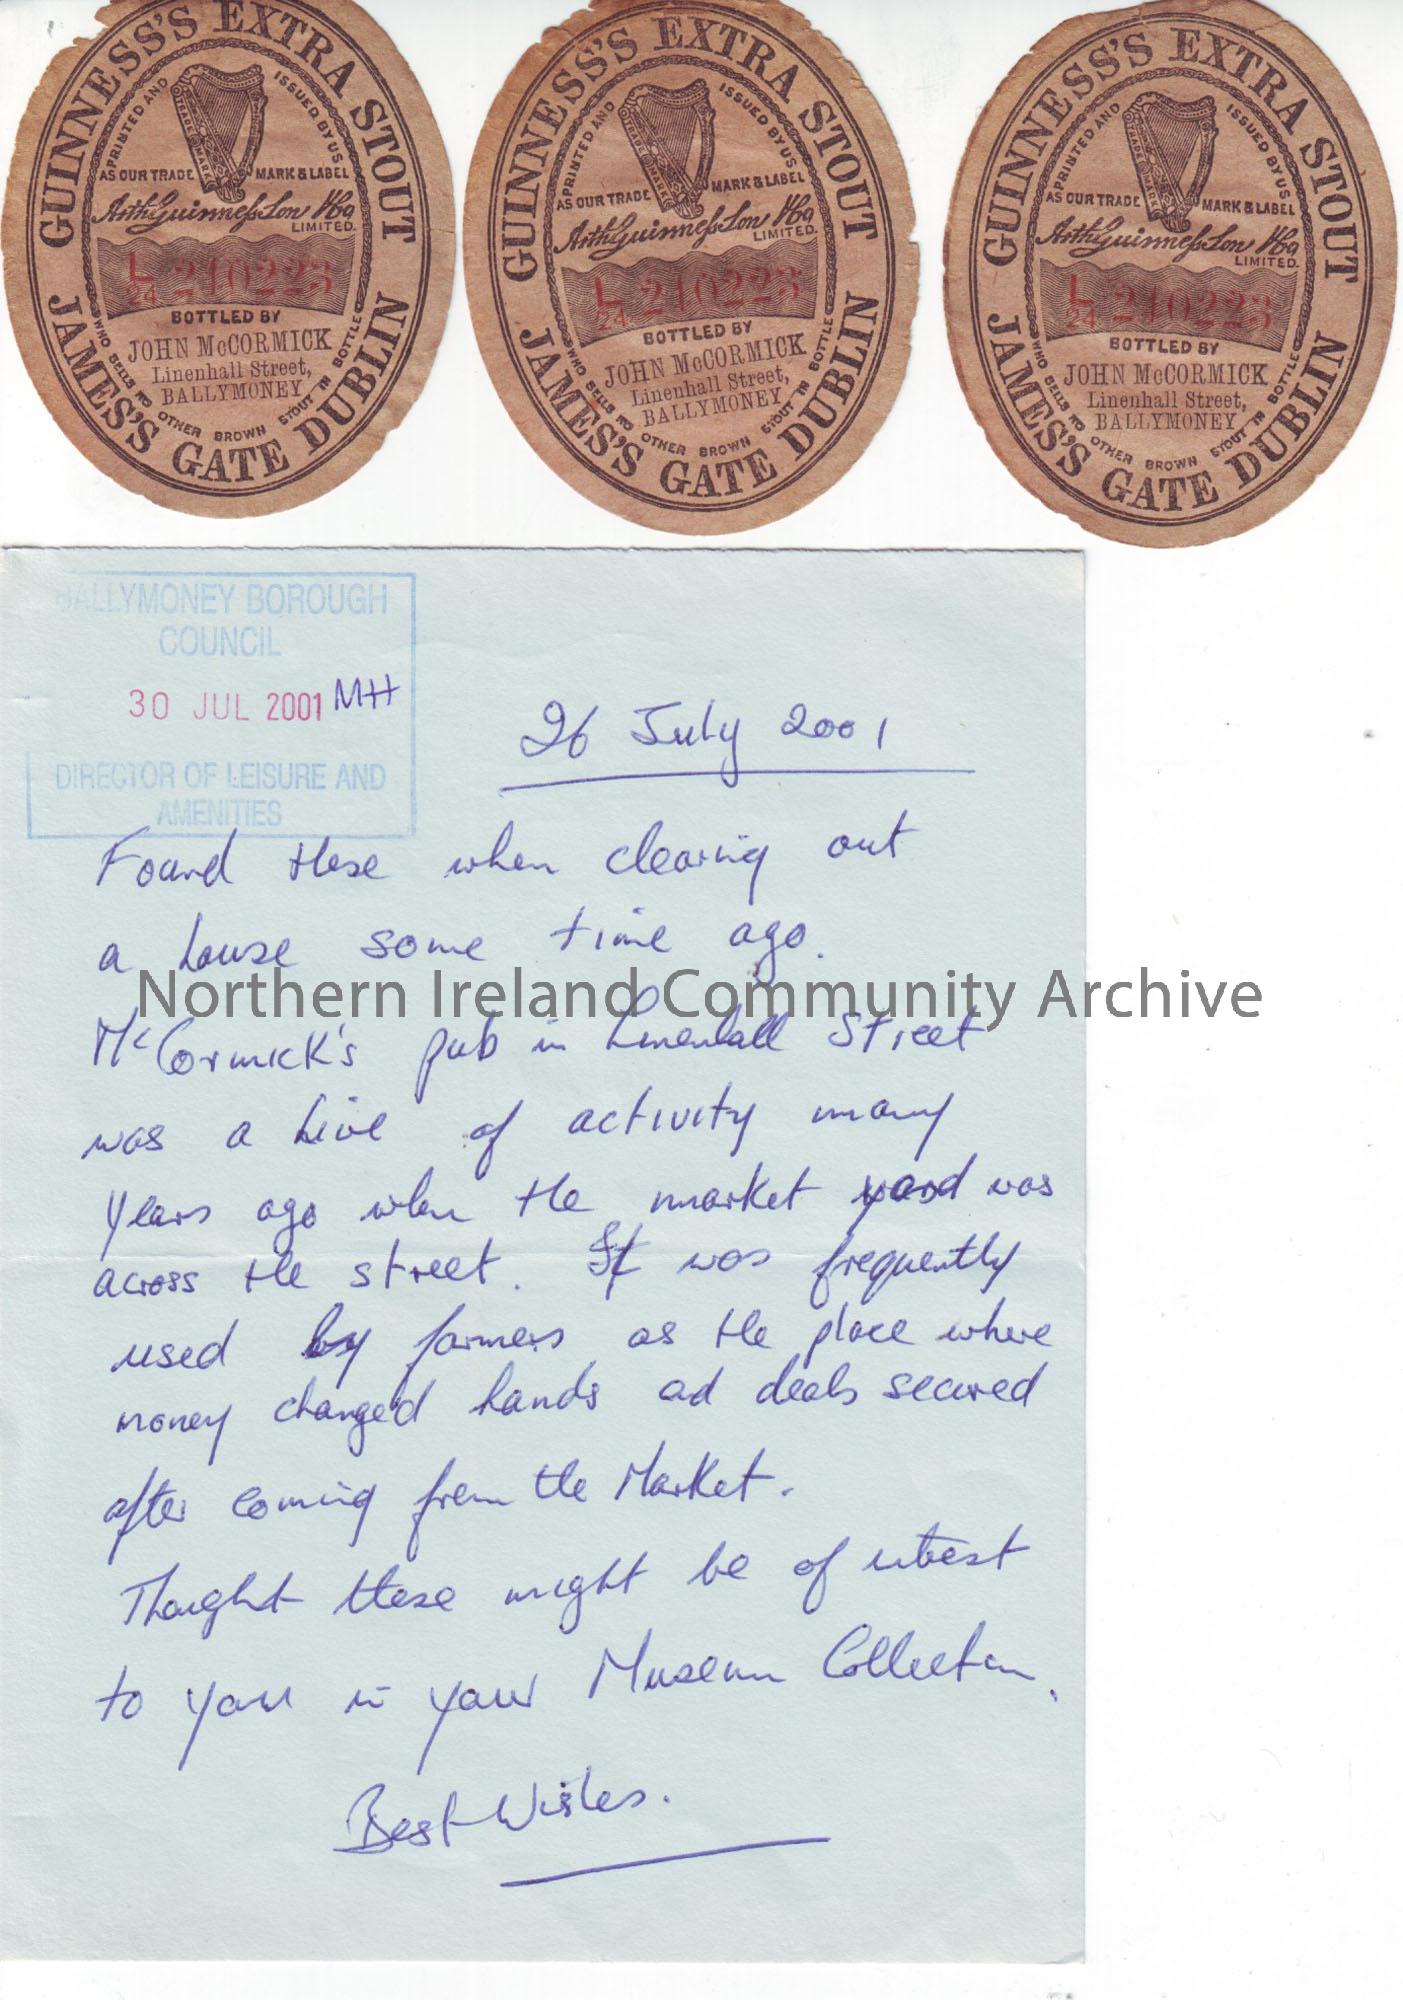 GUINNESS'S EXTRA STOUT
PRINTED AND ISSUED BY US
AS OUR TRADE MARK & LABEL
TRADE MARK
Arth Guinness Son & Co
LIMITED.
L/24 210223
BOTTLED BY
JOHN McCORMICK
Linenhall Street,
BALLYMONEY
WHO SELLS NO OTHER BROWN STOUT IN BOTTLE
JAMES'S GATE DUBLIN
GUINNESS'S EXTRA STOUT
PRINTED AND ISSUED BY US
AS OUR TRADE MARK & LABEL
TRADE MARK
Arth Guinness Son & Co
LIMITED.
L/24 210223
BOTTLED BY
JOHN McCORMICK
Linenhall Street,
BALLYMONEY
WHO SELLS NO OTHER BROWN STOUT IN BOTTLE
JAMES'S GATE DUBLIN
GUINNESS'S EXTRA STOUT
PRINTED AND ISSUED BY US
AS OUR TRADE MARK & LABEL
TRADE MARK
Arth Guinness Son & Co
LIMITED.
L/24 210223
BOTTLED BY
JOHN McCORMICK
Linenhall Street,
BALLYMONEY
WHO SELLS NO OTHER BROWN STOUT IN BOTTLE
JAMES'S GATE DUBLIN
BALLYMONEY BOROUGH
COUNCIL
30 JUL 2001 MH
DIRECTOR OF LEISURE AND
AMENITIES
26 July 2001
Found these when clearing out
a house some time ago.
Northern Ireland Community Archive
McCormick's pub in Linenhall Street
was a hive of activity many
years ago when the market yard was
across the street. It was frequently
used by farmers as the place where
money changed hands ad deals secured
after coming from the Market.
Thought these might be of interest
to you in your Museum Collection.
Best Wishes.